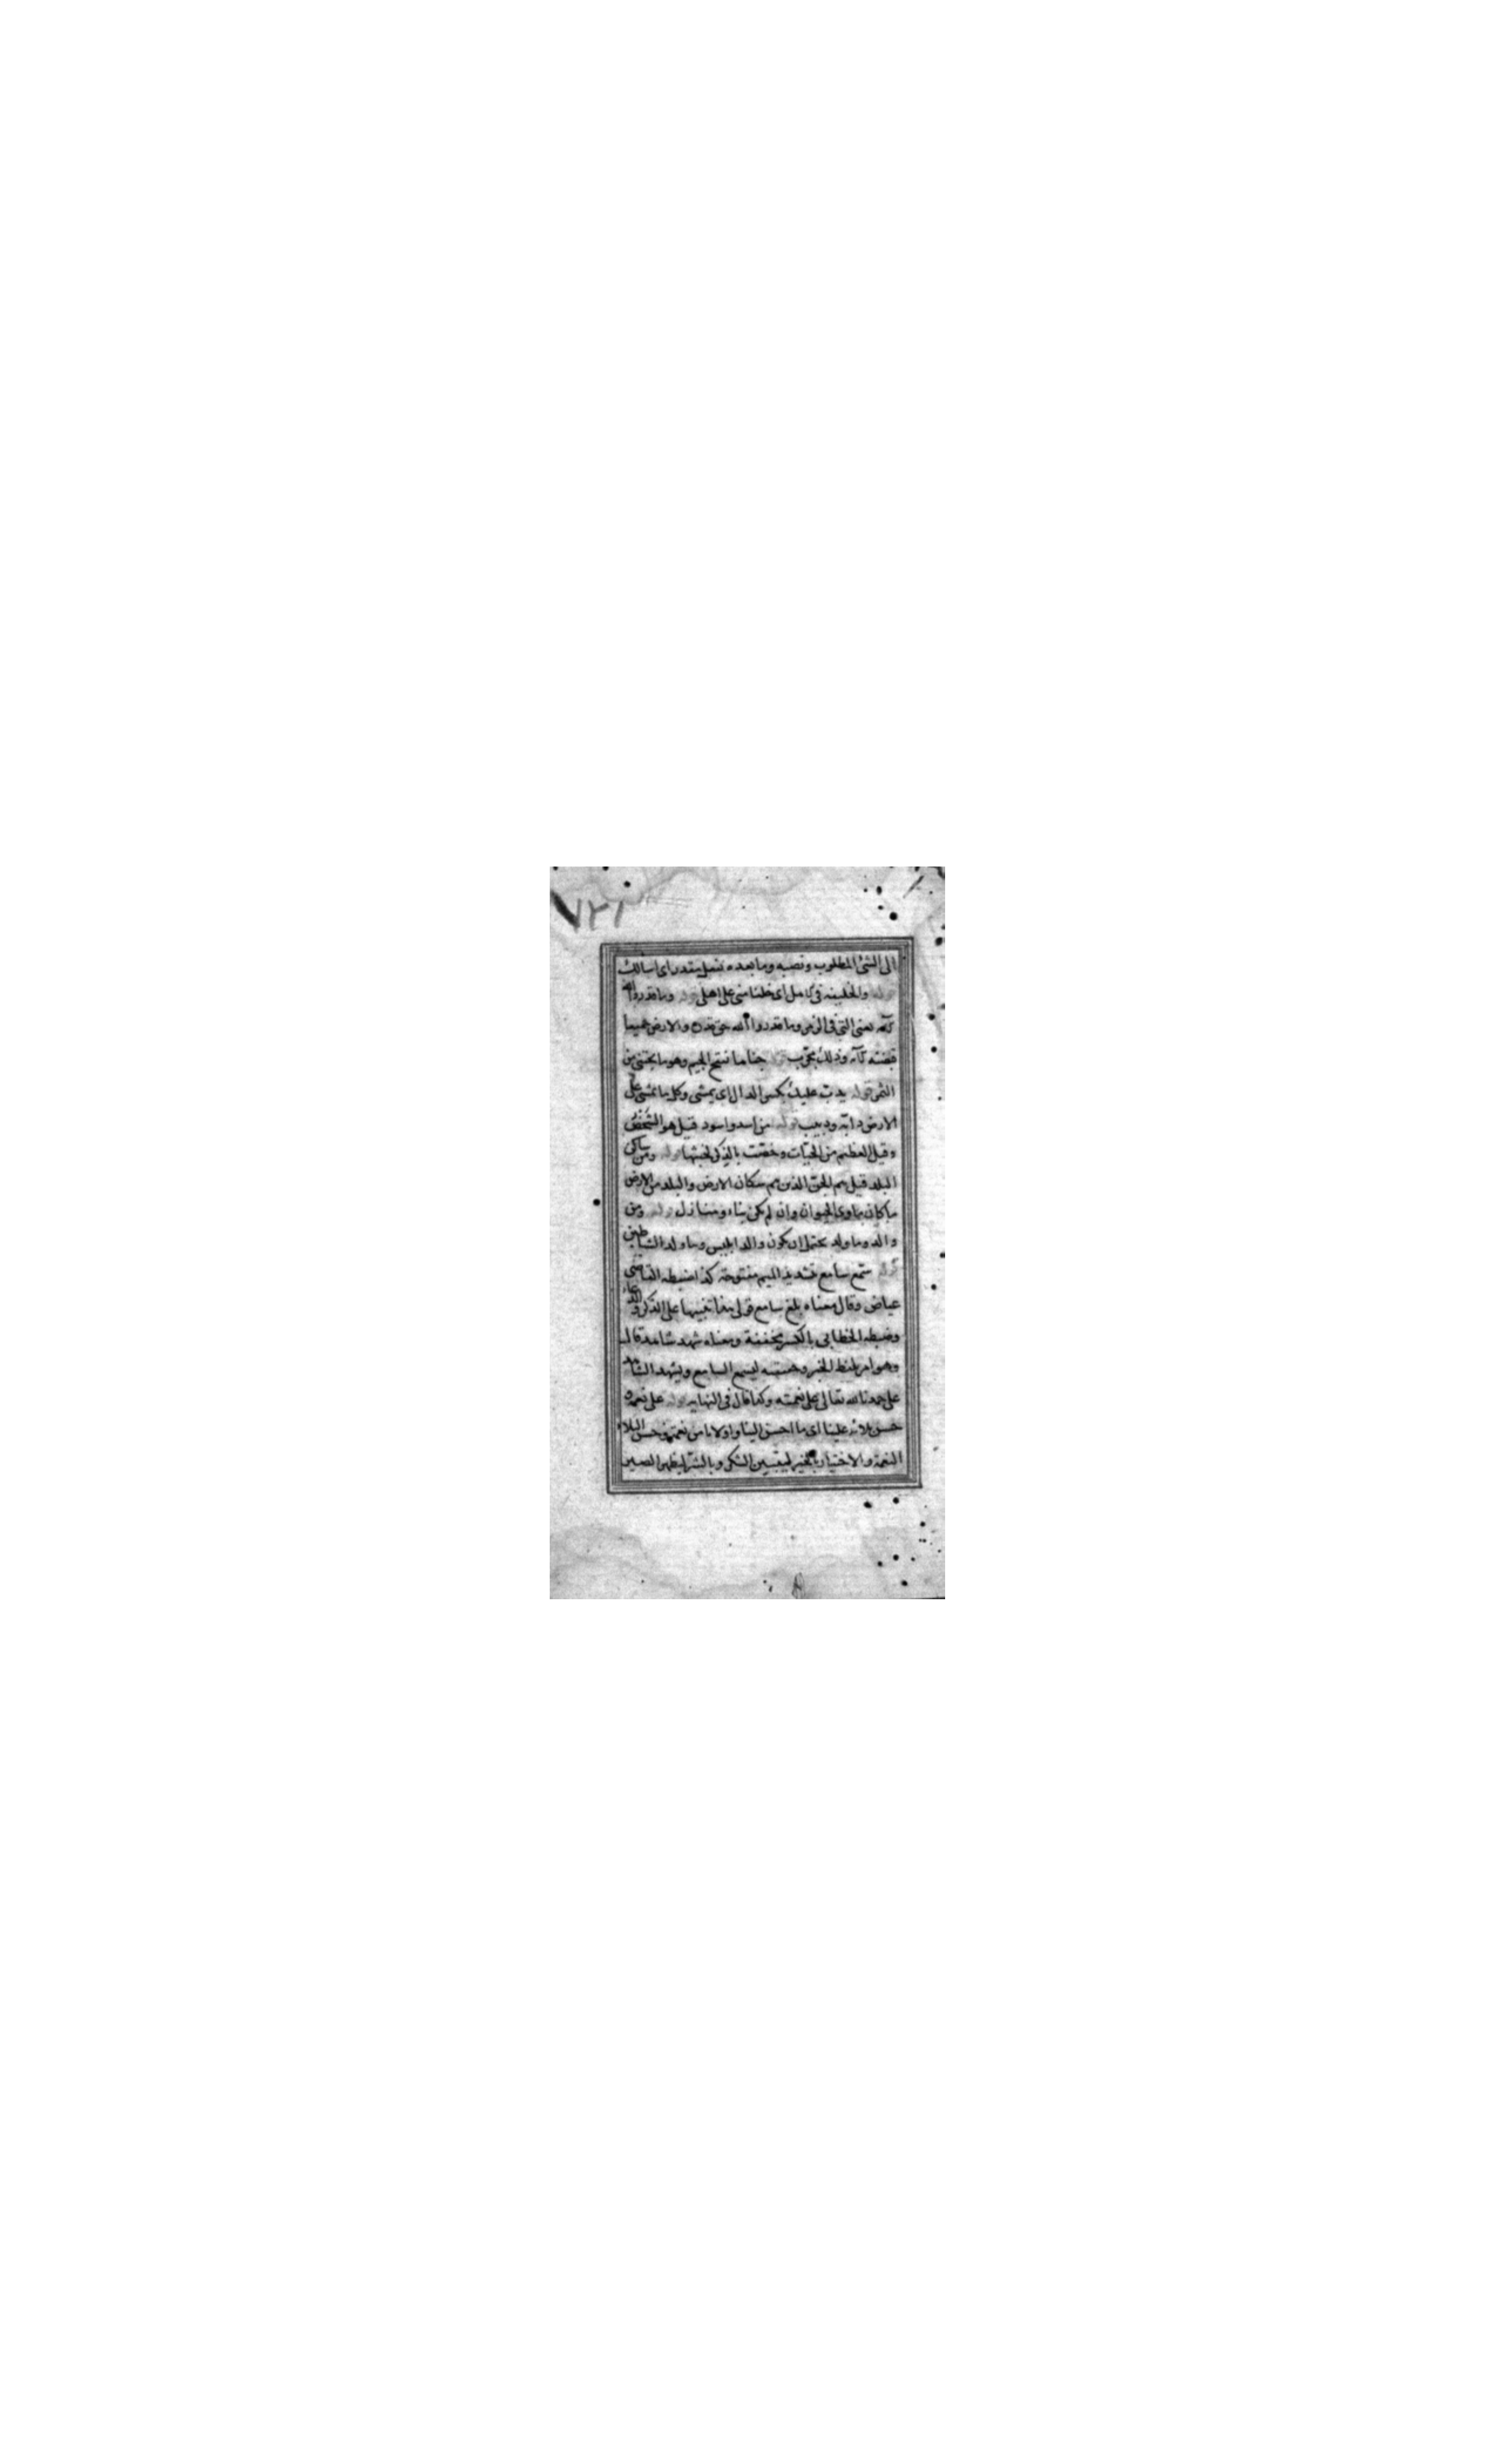 ٧٢١
الى الشئ المطلوب ونصبه وما بعده بفعل مقدر اى اسالك
قوله والخليفة فى كامل اى خلفا منى على اهلى قوله وما قدروا الله
كآية يعنى التى فى الزمر وما قدروا الله حق قدره والارض جميعا
قبضته كآية وذلك مجرب قوله جناها بفتح الجيم وهو ما يجتنى من
الثمر قوله يدب عليك بكسر الدال اى يمشى وكل ما يمشى على
الارض دابة ودبيب قوله من اسد واسود قيل هو الشخص
وقيل العظيم من الحيات وخصت بالذكر لخبثها قوله ومن ساكن
البلد قيل هم الجن الذين هم سكان الارض والبلد من الارض
ما كان ماوى الحيوان وان لم يكن بناء ومنازل قوله ومن
والد وما ولد يحتمل ان يكون والد ابليس وما ولد الشياطين
قوله سمع سامع بتشديد الميم مفتوحة كذا ضبطه القاضى
عياض وقال معناه بلغ سامع قولى هذا تنبيها على الذكر والدعاء
وضبطه الخطابى بالكسر مخففة ومعناه شهد شاهد قال
وهو امر بلفظ الخبر وحقيقته ليسمع السامع وليشهد الشاهد
على حمدنا لله تعالى على نعمته وكذا قال فى النهاية قوله على نعمه و
حسن بلائه علينا اى ما احسن الينا واولانا من نعمه وحسن البلاء
النعمة والاختبار بالخير ليتبين الشكر وبالشر ليظهر الصبر